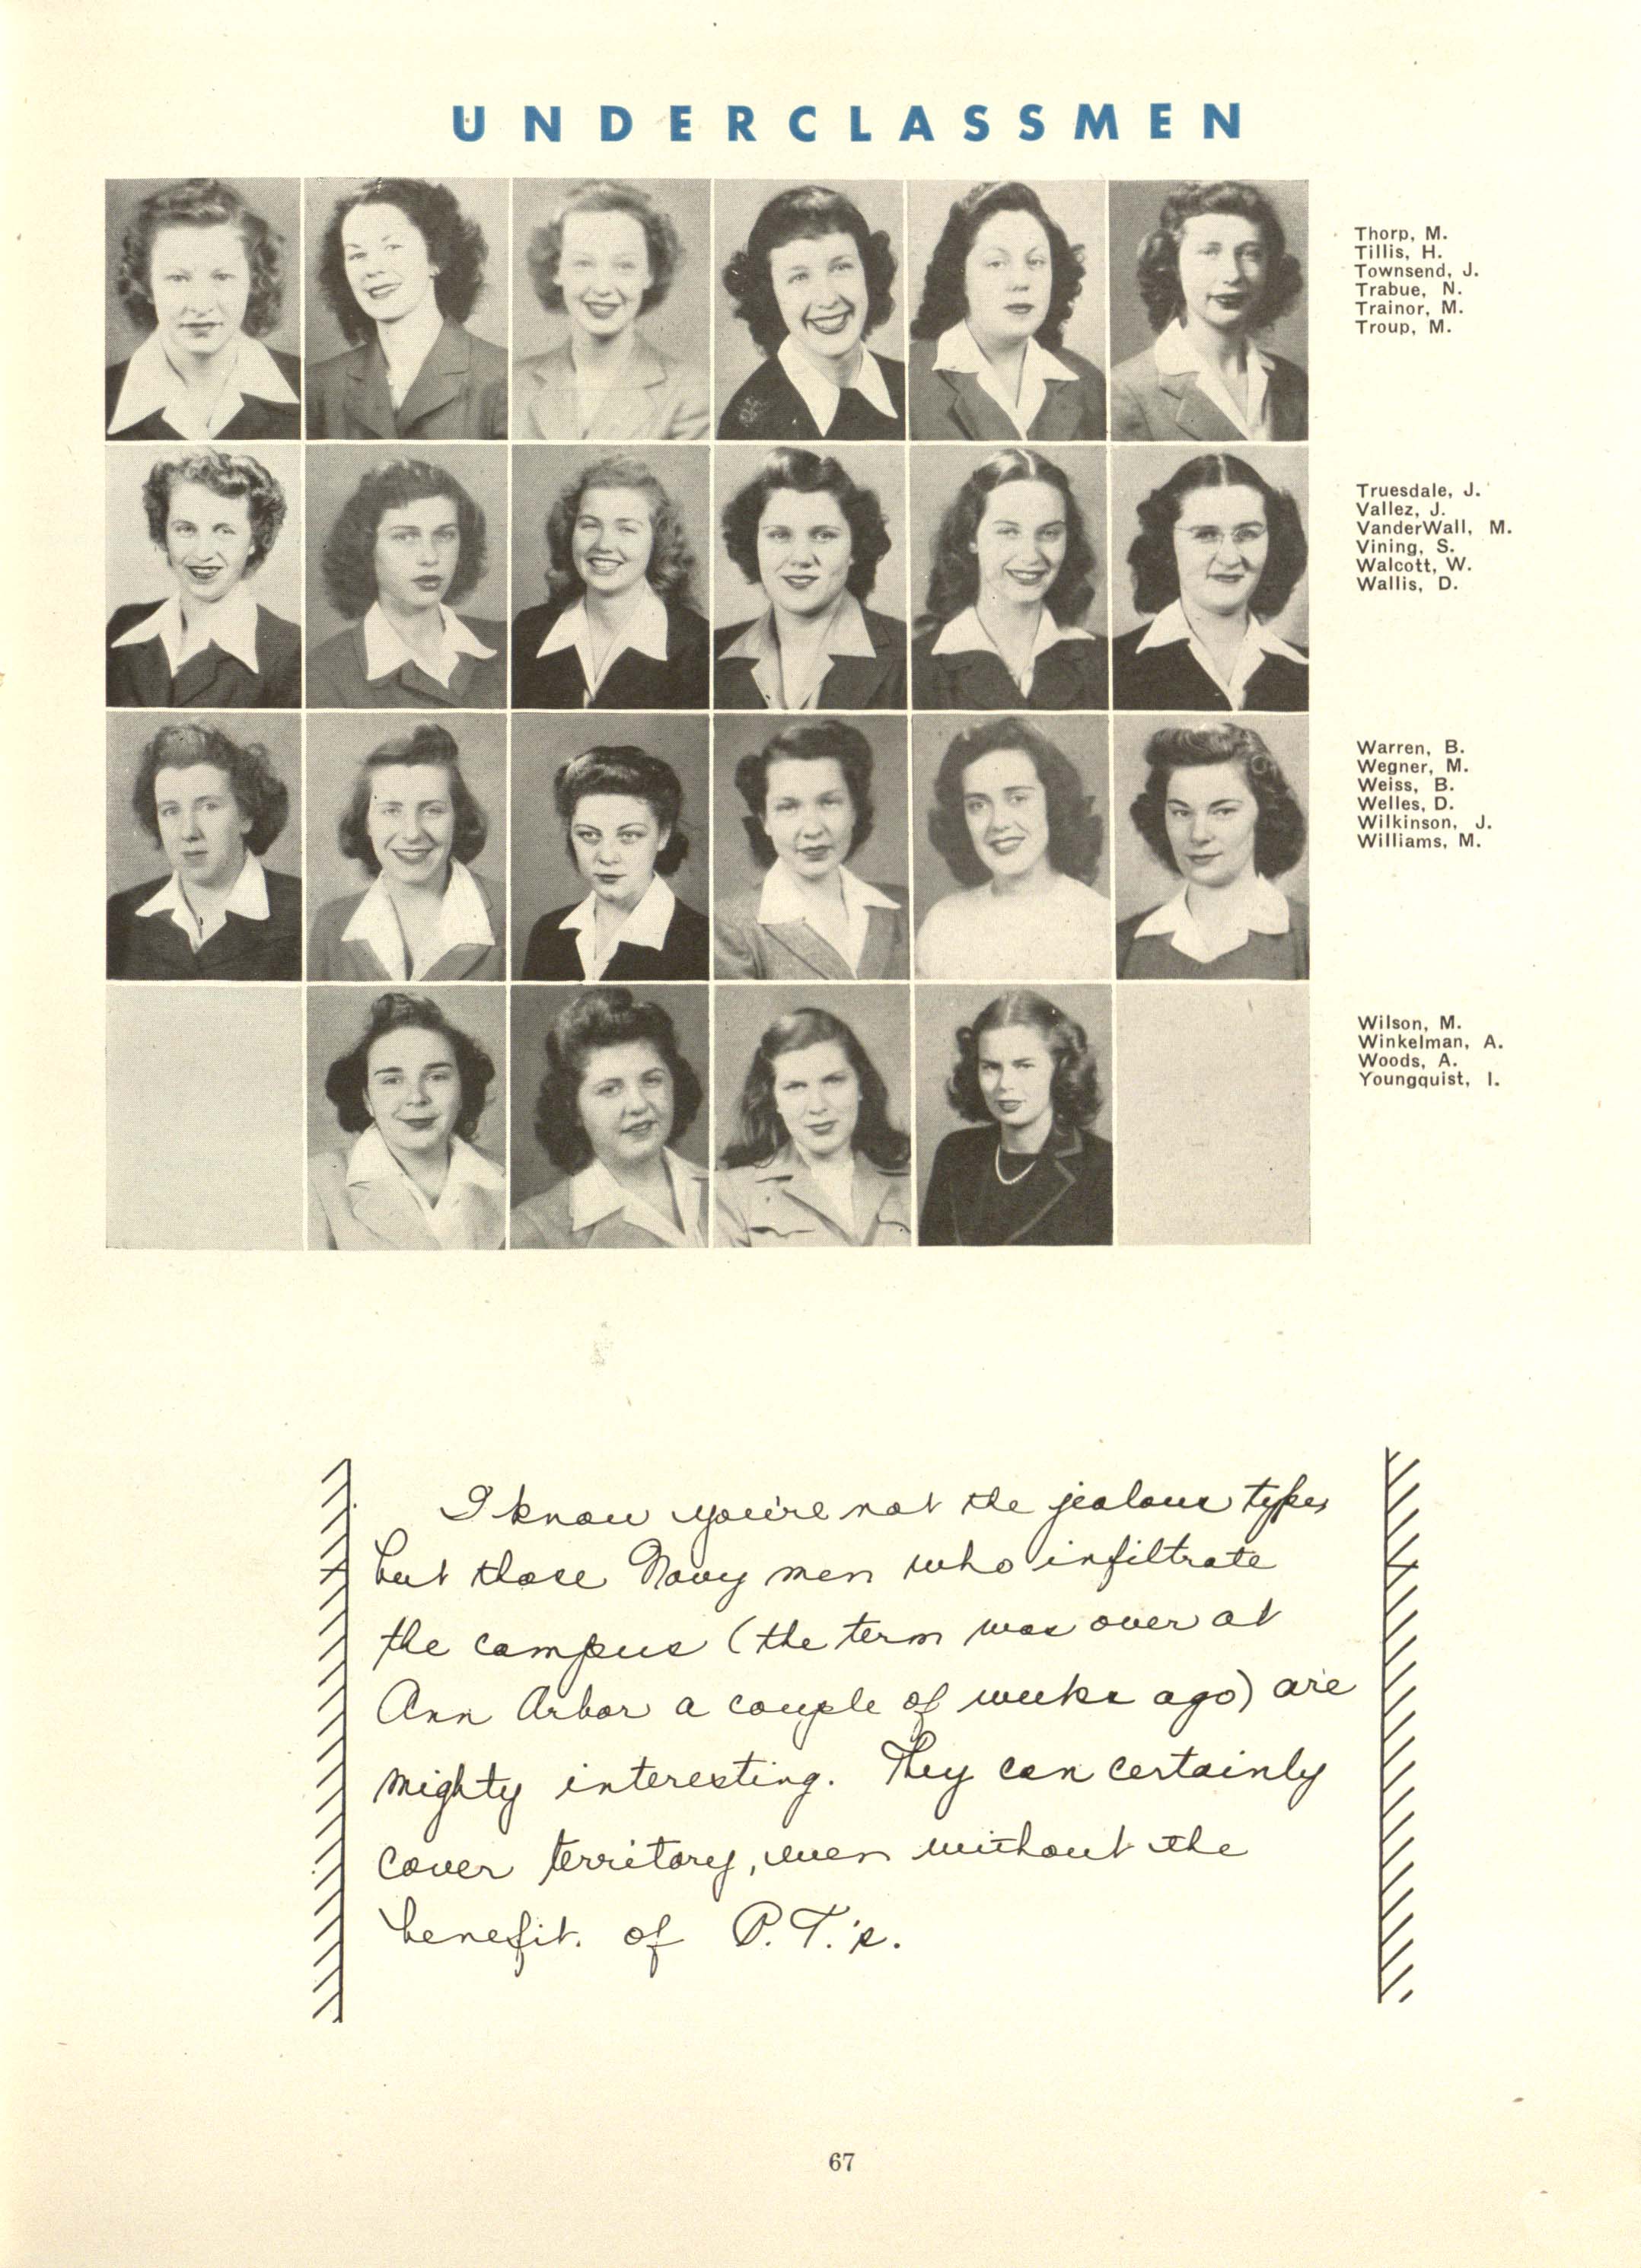 UNDERCLASSMEN
Thorp, M.
Tillis, H.
Townsend, J.
Trabue, N.
Trainor, M.
Troup, M.
Truesdale, J.
Vallez, J.
VanderWall, M.
Vining, S.
Walcott, W.
Wallis, D.
Warren, B.
Wegner, M.
Weiss, B.
Welles, D.
Wilkinson, J.
Williams, M.
Wilson, M.
Winkelman, A.
Woods, A.
Youngquist, I.
I know you're not the jealous type,
but those Navy men who infiltrate
the campus (the term was over at
Ann Arbor a couple of weeks ago) are
mighty interesting. They can certainly
cover territory, even without the
benefit of P.T.'s.
67